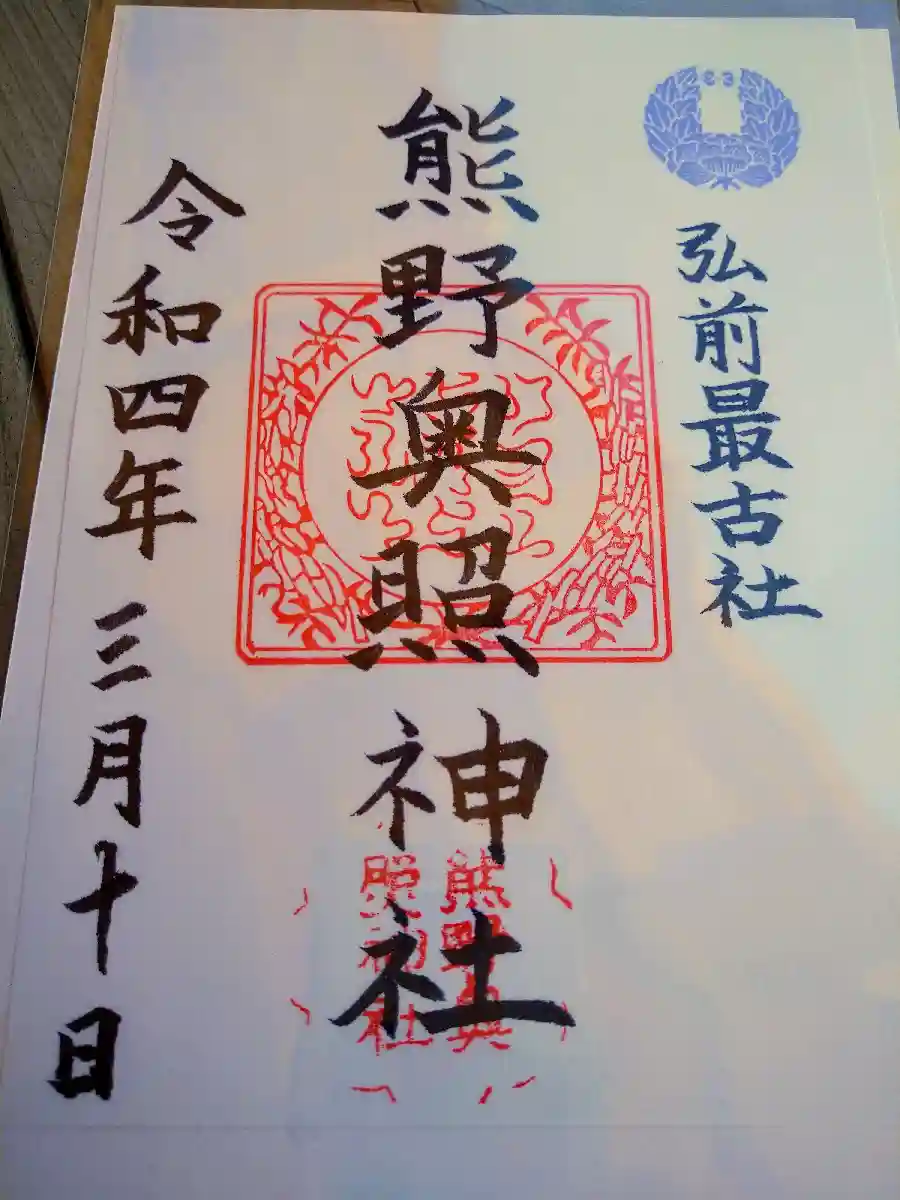 弘前最古社
熊野奥照神社
熊野奥
照神社
令和四年 三月十日